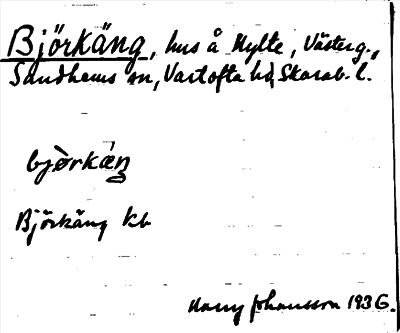 Björkäng, hus å Hylte, Västerg.,
Sandhems sn, Vartofta hd, Skarab. l.
bjò̀rkáŋ
Björkäng kb
Harry Johansson 1936.